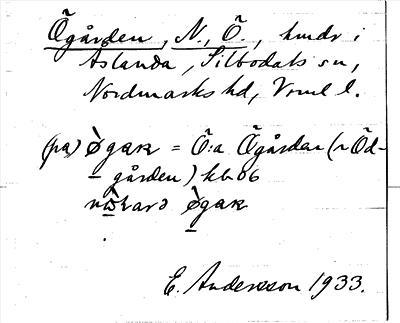 Ögården, N., Ö., hmdr i
Åslanda, Silbodals sn,
Nordmarks hd, Vrml l.
(pa) ø̀gaʀ = Ö:a Ögårdar (r Öd-
gården) kb 06
ø̀gaʀ
E. Andersson 1933.